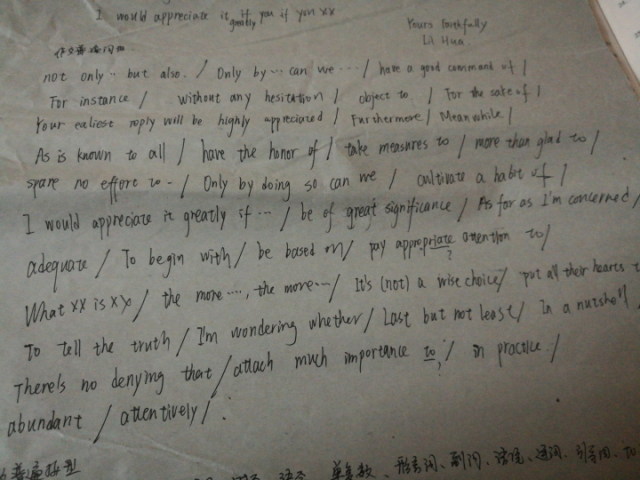 I would appreciate it greatly if you if you xx
Yours faithfully
Li Hua
not only ·· but also. / Only by ··· can we ··· / have a good command of /
For instance / without any hesitation / object to / For the sake of /
Your ealiest reply will be highly appreciated / Furthermore / Meanwhile /
As is known to all / have the honor of / take measures to / more than glad to /
spare no effort to - / Only by doing so can we / cultivate a habit of /
I would appreciate it greatly if ··· / be of great significance / As for as I'm concerned /
adequate / To begin with / be based on / pay appropriate attention to /
?
What xx is xx / the more ····, the more ··· / It's (not) a wise choice / put all their hearts t
To tell the truth / I'm wondering whether / Last but not least / In a nutshell
There's no denying that / attach much importance to / in practice /
?
abundant / attentively / .
单复数、形容词、副词、